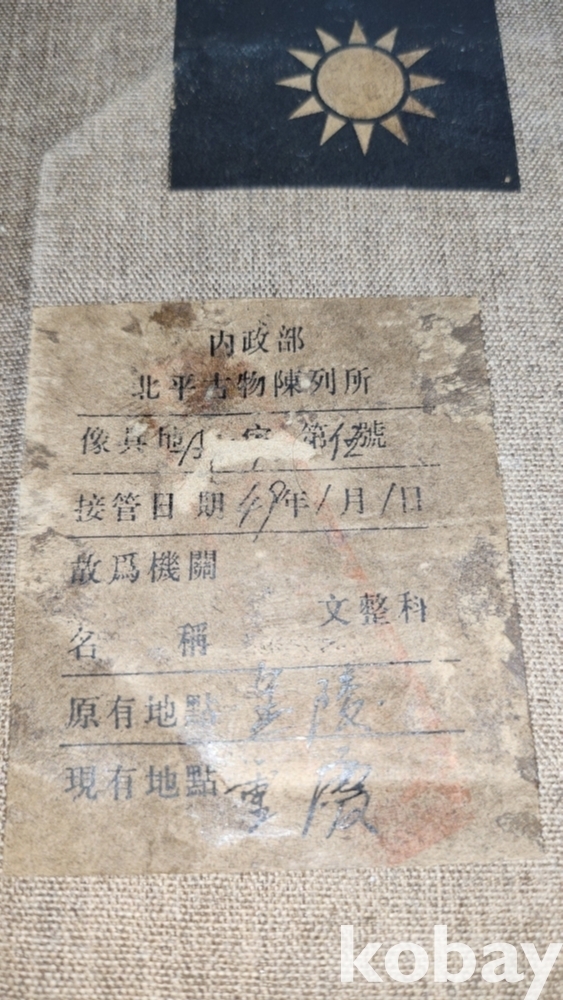 内政部
北平古物陳列所
像具地 字 第伍號
接管日期 19年1月1日
敵爲機關
文整科
名 稱
原有地點
現有地點
kobay